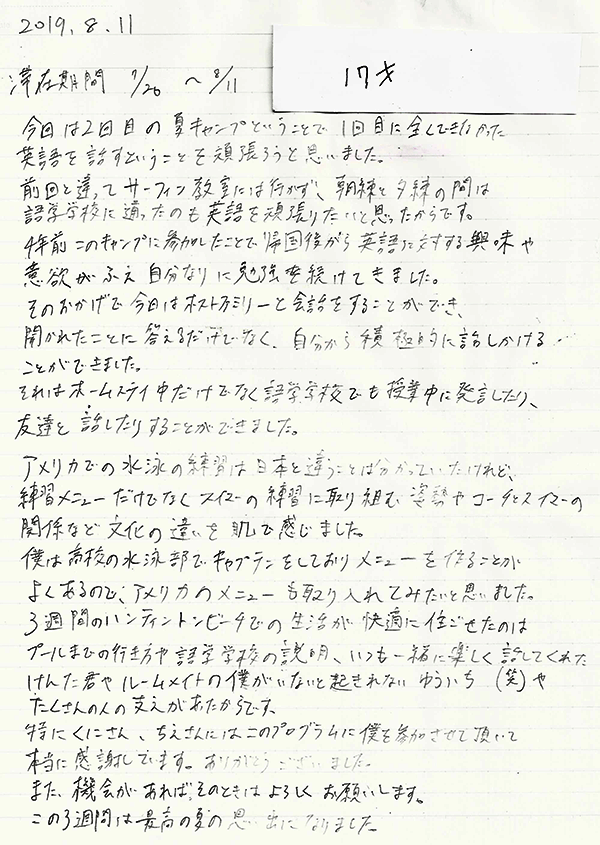 2019.8.11
滞在期間 7/20 〜 8/11
17才
今回は2回目の夏キャンプということで 1回目に全くできなかった
英語を話すということを頑張ろうと思いました。
前回と違ってサーフィン教室には行かず、朝練と夕練の間は
語学学校に通ったのも英語を頑張りたいと思ったからです。
4年前このキャンプに参加したことで帰国後から英語に対する興味や
意欲がふえ自分なりに勉強を続けてきました。
そのおかげで今回はホストファミリーと会話をすることができ、
聞かれたことに答えるだけでなく、自分から積極的に話しかける
ことができました。
それはホームステイ中だけでなく語学学校でも授業中に発言したり、
友達と話したりすることができました。
アメリカでの水泳の練習は日本と違うことは分かっていたけれど、
練習メニューだけでなくスイマーの練習に取り組む姿勢やコーチとスイマーの
関係など文化の違いを肌で感じました。
僕は高校の水泳部でキャプテンをしておりメニューを作ることが
よくあるので、アメリカのメニューも取り入れてみたいと思いました。
3週間のハンティントンビーチでの生活が快適に住ごせたのは
プールまでの行き方や語学学校の説明、いつも一緒に楽しく話してくれた
けんた君やルームメイトの僕がいないと起きれないゆういち(笑)や
たくさんの人の支えがあたからです。
特にくにさん、ちえさんにはこのプログラムに僕を参加させて頂いて
本当に感謝しています。ありがとうございました。
また、機会があれば、そのときはよろしくお願いします。
この3週間は最高の夏の思い出になりました